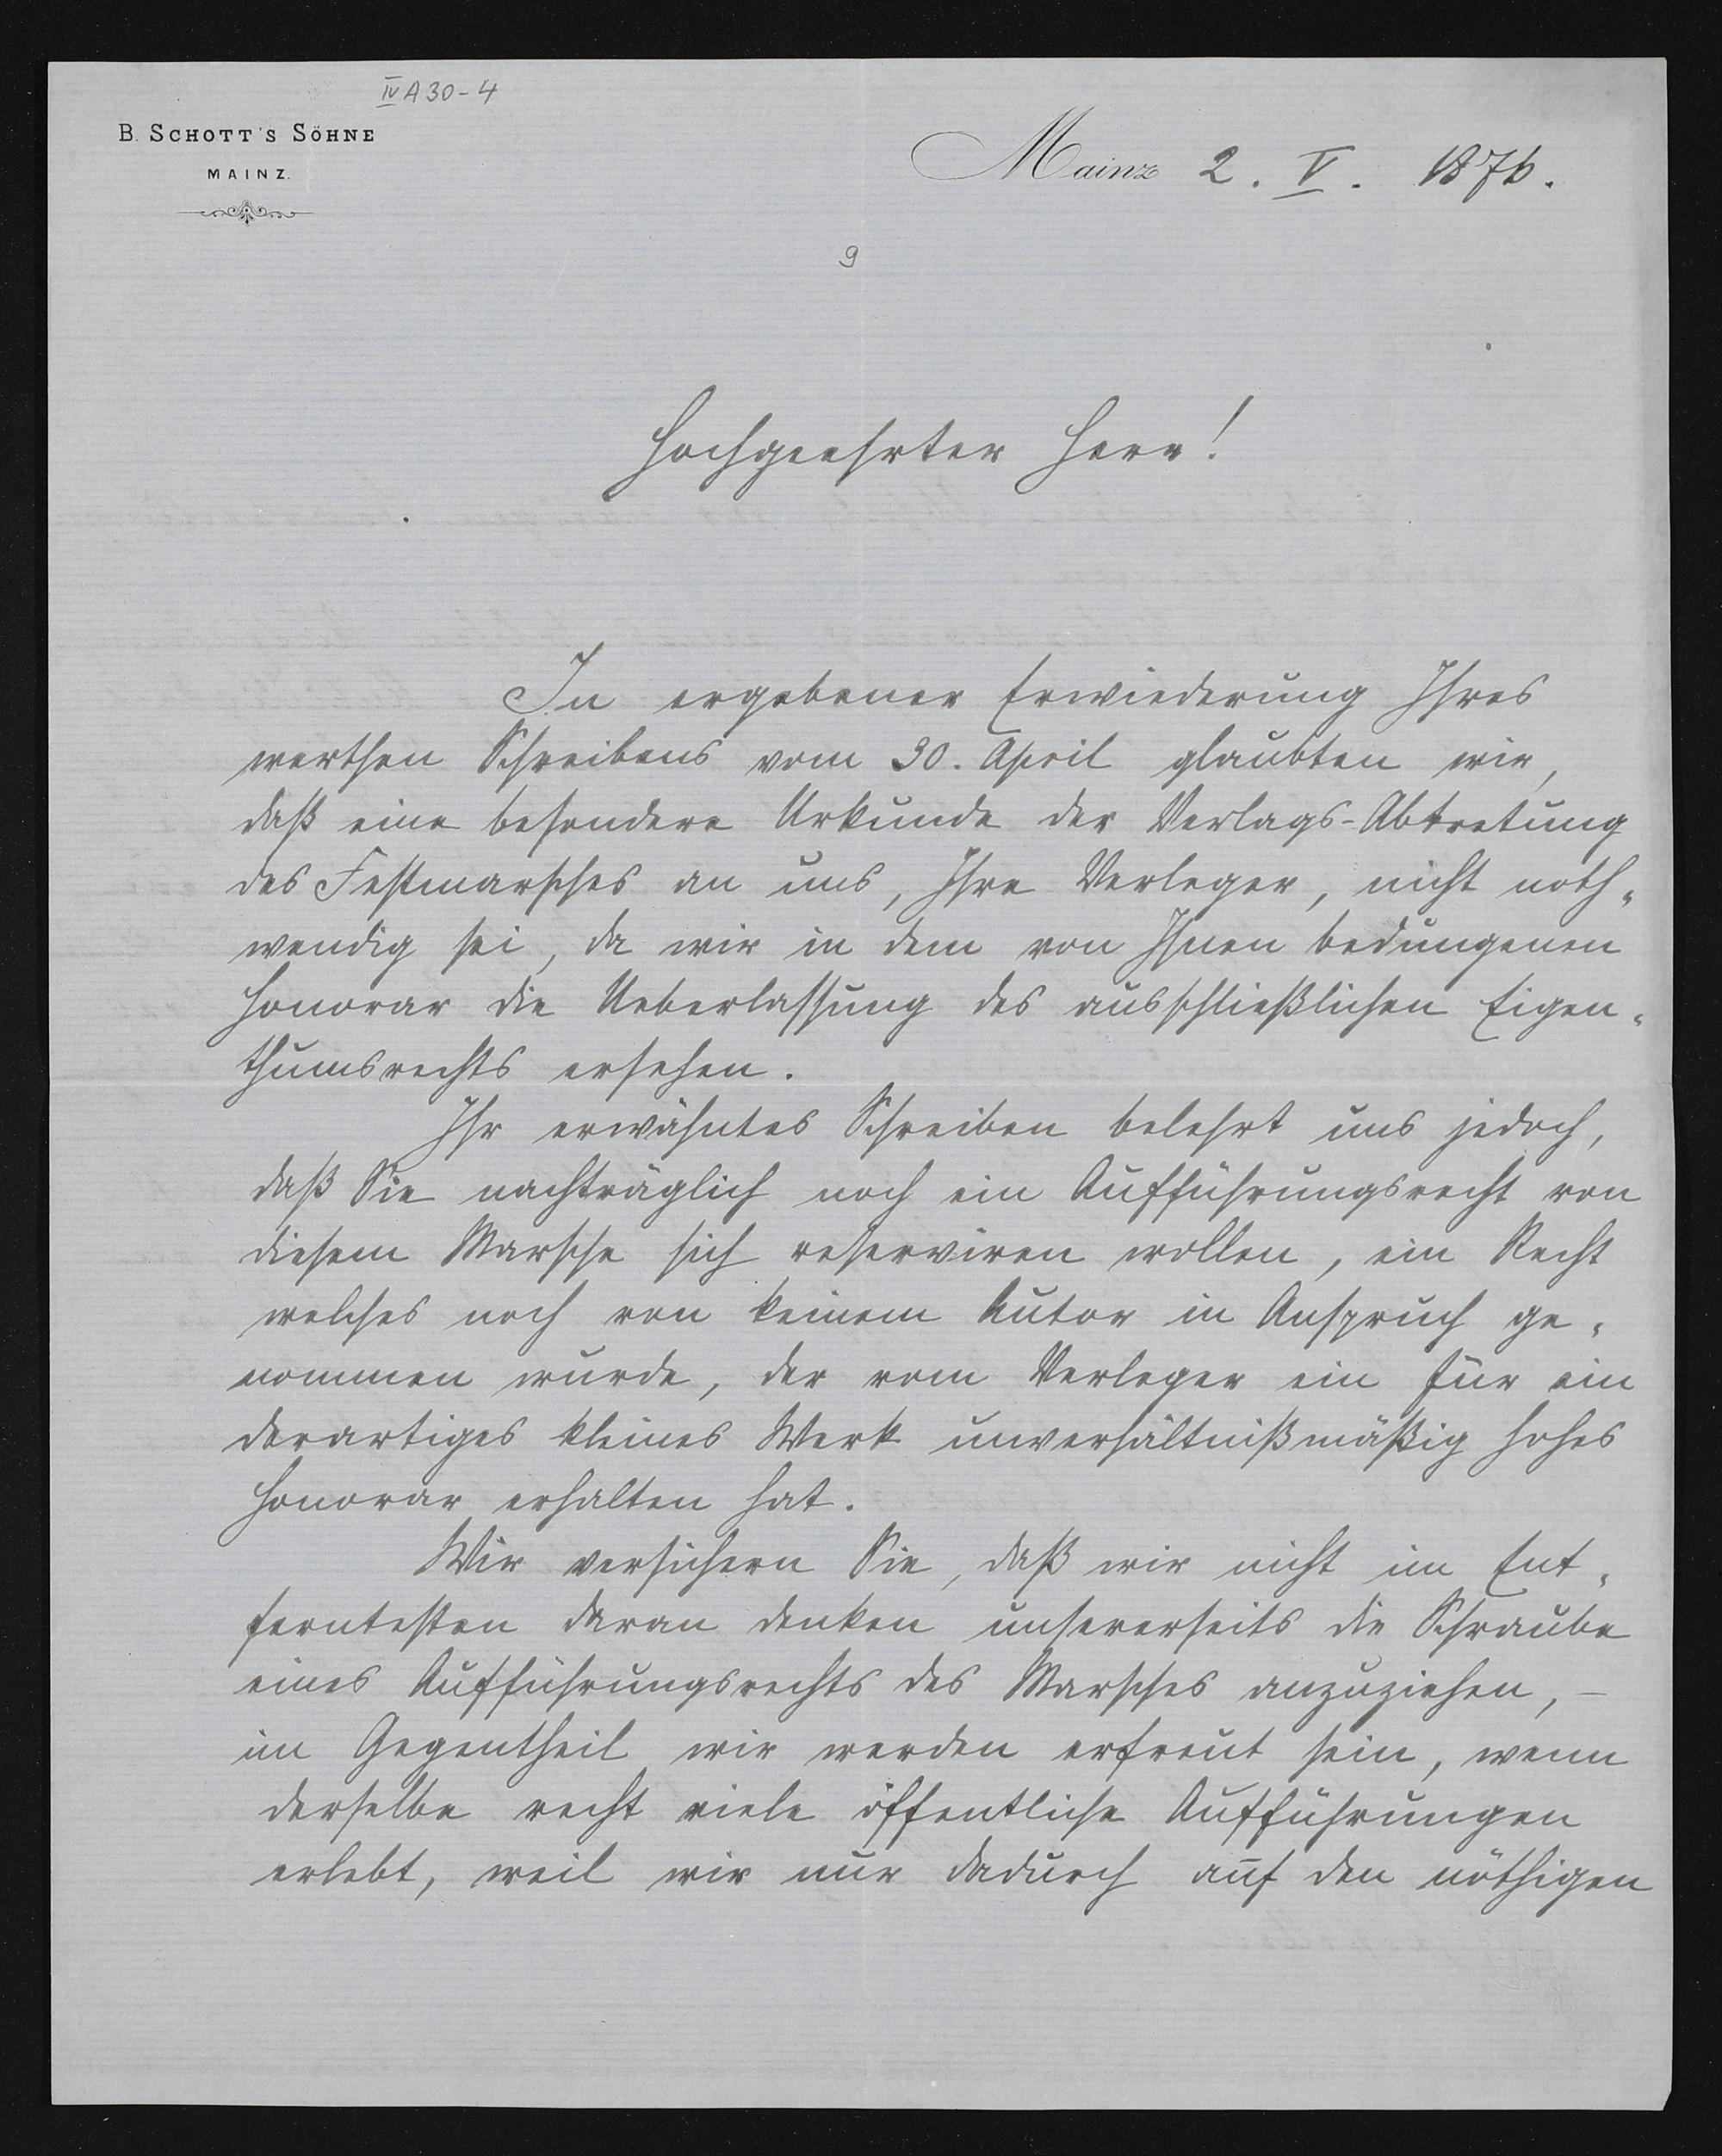 IV A 30-4
B. SCHOTT'S SÖHNE
MAINZ.
Mainz 2. V. 1876.
9
Hochgeehrter Herr!
In ergebener Erwiederung Ihres
werthen Schreibens vom 30. April glaubten wir,
daß eine besondere Urkunde der Verlags-Abtretung
des Festmarsches an uns, Ihre Verleger, nicht noth-
wendig sei, da wir in dem von Ihnen bedungenen
Honorar die Ueberlassung des ausschließlichen Eigen-
thumsrechts ersehen.
Ihr erwähntes Schreiben belehrt uns jedoch,
daß Sie nachträglich noch ein Aufführungsrecht von
diesem Marsche sich reserviren wollen, ein Recht
welches noch von keinem Autor in Anspruch ge-
nommen wurde, der vom Verleger ein für ein
derartiges kleines Werk unverhältnißmäßig hohes
Honorar erhalten hat.
Wir versichern Sie, daß wir nicht im Ent-
ferntesten daran denken unsererseits die Schraube
eines Aufführungsrechts des Marsches anzuziehen, –
im Gegentheil wir werden erfreut sein, wenn
derselbe recht viele öffentliche Aufführungen
erlebt, weil wir nur dadurch auf den nöthigen